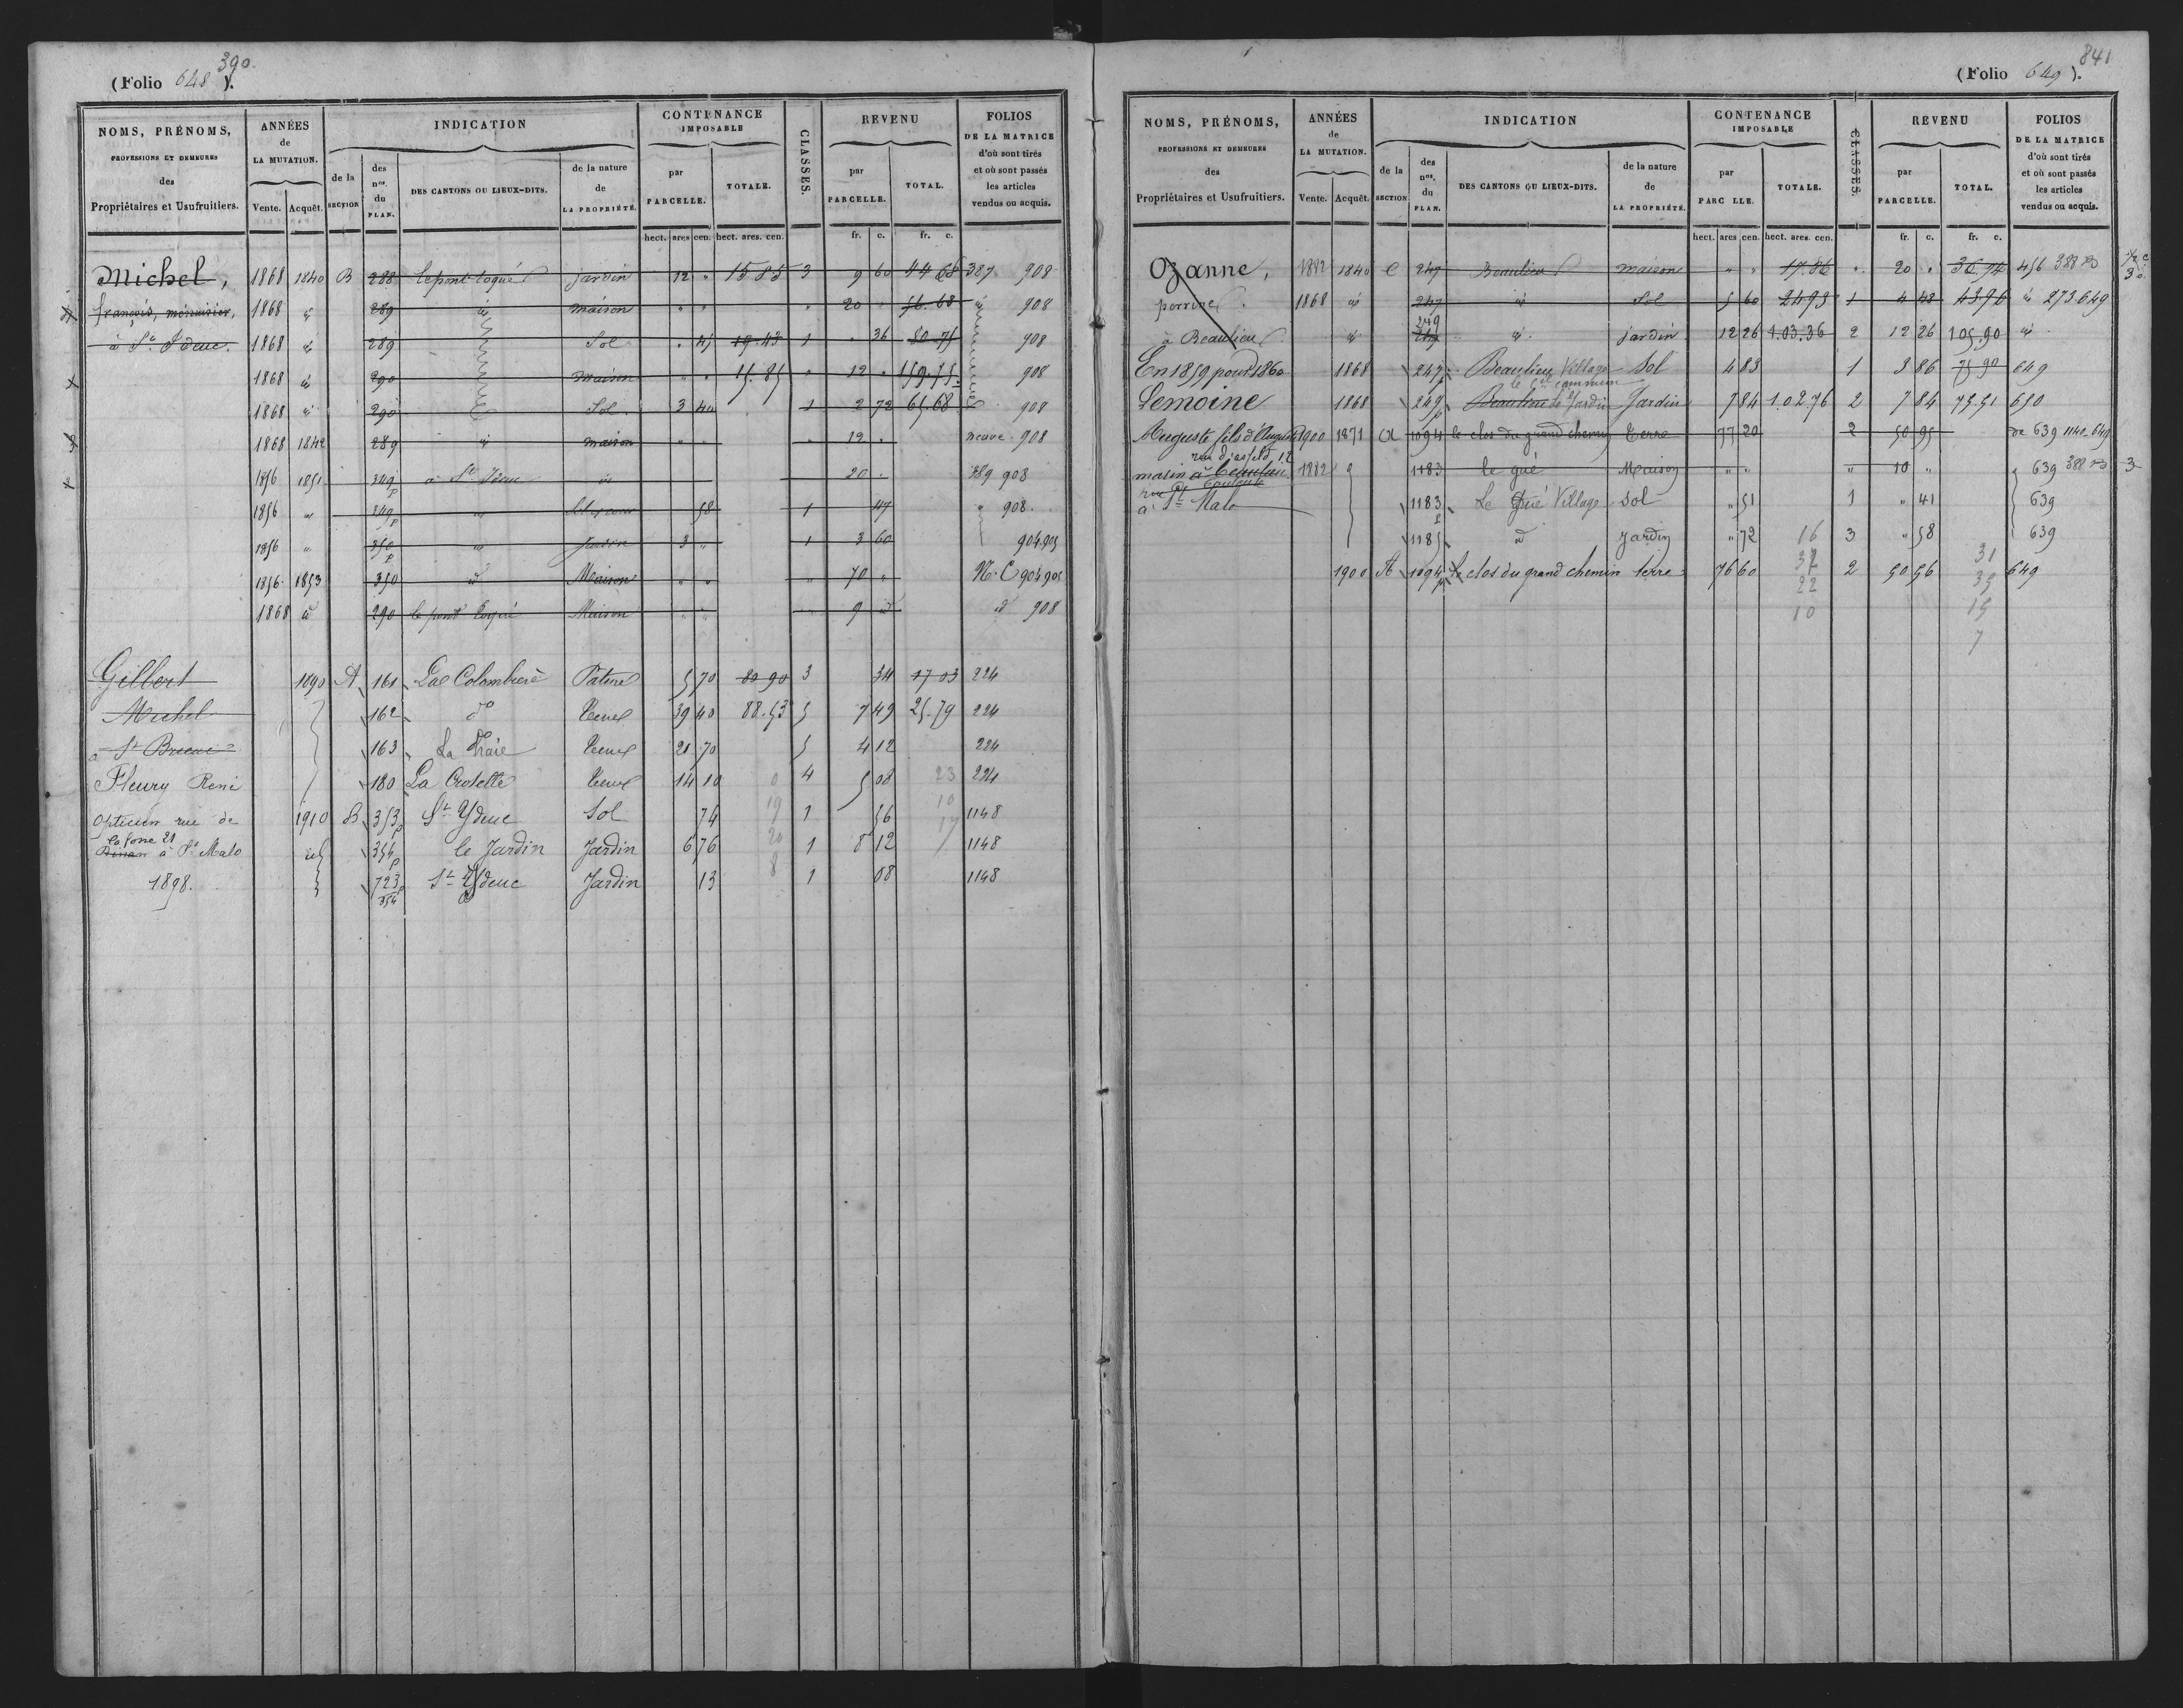 390
(Folio 648).
NOMS, PRÉNOMS,
PROFESSIONS ET DEMEURES
des
Propriétaires et Usufruitiers.
ANNÉES
de
LA MUTATION.
Vente. Acquêt.
INDICATION
de la
SECTION
des
nos.
du
PLAN.
DES CANTONS OU LIEUX-DITS.
de la nature
de
LA PROPRIÉTÉ.
CONTENANCE
IMPOSABLE
par
PARCELLE.
TOTALE.
CLASSES.
REVENU
par
PARCELLE.
TOTAL.
FOLIOS
DE LA MATRICE
d'où sont tirés
et où sont passés
les articles
vendus ou acquis.
hect. ares cen. hect. ares. cen. fr. c. fr. c.
Michel, 1868 1840 B 288 le pont toqué jardin 12 " 15 85 3 9 60 44 68 387 908
françois, menuisier, 1868 id 289 id maison " " " 20 " 56.68 id 908
à St Ideuc. 1868 id 289 Sol " 45 19.43 1 " 36 80.75 908
1868 id 290 maison " " 15.85 " 12 " 159.75 908
1868 id 290 Sol 3 40 1 2 72 65.68 908
1868 1842 289 id maison " " " 12 " neuve 908
1856 1851 349p à St Ideuc id 20 " 389 908
1856 " 349p " Sol 58 1 47 " 908
1856 " 350p " Jardin 3 " 1 3 60 904.905
1856 1853 350 d Maison " " " 70 " N.C 904 905
1868 d 290 le pont toqué Maison " " 9 d d 908
Gilbert 1890 A 161 La Colombière Pature 5 70 80 90 3 34 17 03 224
Michel 162 do Terre 39 40 88.53 5 7 49 25.79 224
à St Brieuc 163 La Haie Terre 20 70 5 4 12 224
Fleury René 180 La Crolette Terre 14 10 0 4 5 08 23 224
Opticien rue de 1910 B 353p St Ydeuc Sol 74 19 1 56 10 1148
la fosse 21
Dinan à St Malo id 354p le Jardin Jardin 6 76 20 1 8 12 1148
1898. 723p St Ydeuc Jardin 13 8 1 08 1148
354
841
(Folio 649).
NOMS, PRÉNOMS,
PROFESSIONS ET DEMEURES
des
Propriétaires et Usufruitiers.
ANNÉES
de
LA MUTATION.
Vente. Acquêt.
INDICATION
de la
SECTION
des
nos.
du
PLAN.
DES CANTONS OU LIEUX-DITS.
de la nature
de
LA PROPRIÉTÉ.
CONTENANCE
IMPOSABLE
par
PARC LLE.
TOTALE.
CLASSES.
REVENU
par
PARCELLE.
TOTAL.
FOLIOS
DE LA MATRICE
d'où sont tirés
et où sont passés
les articles
vendus ou acquis.
hect. ares cen. hect. ares. cen. fr. c. fr. c.
Ozanne, 1882 1840 C 247 Beaulieu maison " " 17.86 " 20 " 36.74 456 388
perrine 1868 id 247 id Sol 5 60 24 93 1 4 48 43.96 id 273.649
à Beaulieu id 249 id jardin 12 26 1.03.36 2 12 26 105.90 id
En 1859 pour 1860 1868 247p Beaulieu Village Sol 4 83 1 3 86 75 90 649
Lemoine 1868 249p Beaulieu le Jardin Jardin 7 84 1.02.76 2 7 84 75.51 650
Auguste fils d'Auguste 1900 1871 A 1094 le clos du grand chemin Terre 77 20 2 50 95 de 639 1140-649
marin à Beaulieu 1882 1183 le gué Maison " " " 10 " 639 388 3
à St Malo 1183p Le Gué Village Sol " 51 1 " 41 639
1185 d Jardin " 72 16 3 " 58 639
1900 A 1094p le clos du grand chemin terre 76 60 37 2 50 56 31 649
22 35
10 15
7